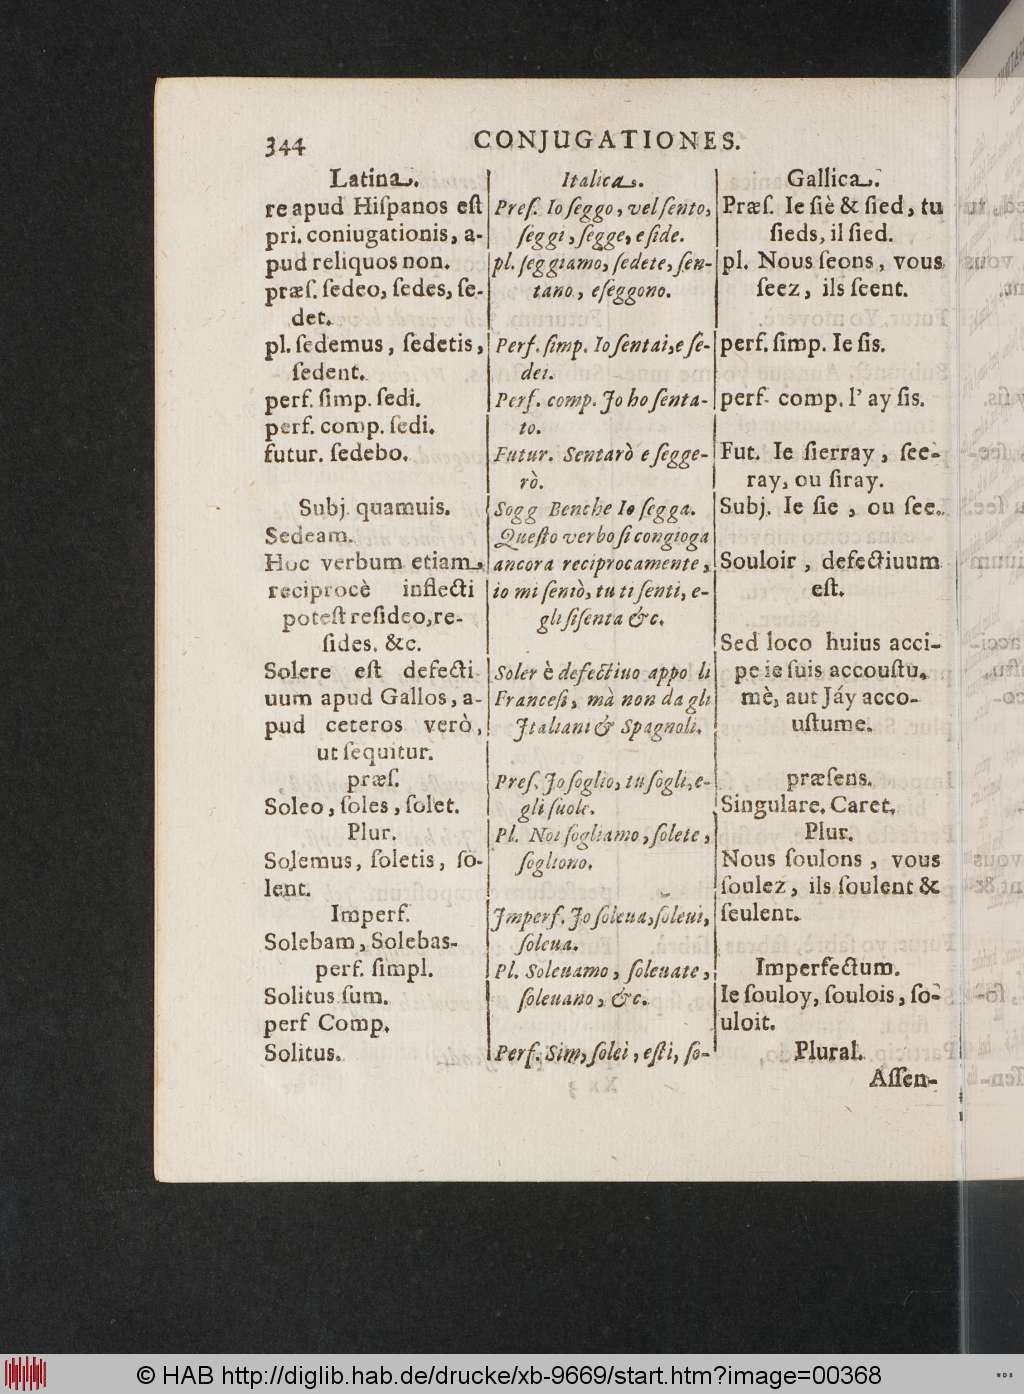 344
CONJUGATIONES.
Latina.
re apud Hiſpanos eſt
pri. coniugationis, a-
pud reliquos non.
præſ. ſedeo, ſedes, ſe-
det.
pl. ſedemus, ſedetis,
ſedent.
perf. ſimp. ſedi.
perf. comp. ſedi.
futur. ſedebo.
Subj. quamuis.
Sedeam.
Hoc verbum etiam
reciprocè inflecti
poteſt reſideo, re-
ſides, &c.
Solere eſt defecti
uum apud Gallos, a-
pud ceteros verò,
ut ſequitur.
præſ.
Soleo, ſoles, ſolet.
Plur.
Solemus, ſoletis, ſo-
lent.
Imperf.
Solebam, Solebas-
perf. ſimpl.
Solitus ſum.
perf Comp.
Solitus.
Italica.
Preſ. Io ſeggo, vel ſento,
ſeggi, ſegge, e ſide.
pl. ſeggiamo, ſedete, ſen-
tano, eſeggono.
Perf. ſimp. Io ſentai, e ſe-
dei.
Perf. comp. Jo ho ſenta-
to.
Futur. Sentarò e ſegge-
rò.
Sogg Benche Io ſegga.
Queſto verbo ſi congioga
ancora reciprocamente,
io mi ſentò, tu ti ſenti, e-
gli ſi ſenta &c.
Soler è defectiuo appo li
Franceſi, mà non da gli
Italiani & Spagnoli.
Preſ. Jo ſoglio, tu ſogli, e-
gli ſuole.
Pl. Noi ſogliamo, ſolete,
ſogliono.
Imperf. Jo ſoleua, ſoleui,
ſoleua.
Pl. Soleuamo, ſoleuate,
ſoleuano, &c.
Perf. Sim, ſolei, eſti, ſo-
Gallica.
Præſ. Ie ſiè & ſied, tu
ſieds, il ſied.
pl. Nous ſeons, vous
ſeez, ils ſeent.
perf. ſimp. Ie ſis.
perf. comp. l' ay ſis.
Fut. Ie ſierray, ſee-
ray, ou ſiray.
Subj. Ie ſie, ou ſee.
Souloir, defectiuum
eſt.
Sed loco huius acci-
pe ie ſuis accouſtu,
mè, aut Jáy acco-
uſtume.
præſens.
Singulare. Caret.
Plur.
Nous ſoulons, vous
ſoulez, ils ſoulent &
ſeulent.
Imperfectum.
Ie ſouloy, ſoulois, ſo-
uloit.
Plural.
Aſſen-
© HAB http://diglib.hab.de/drucke/xb-9669/start.htm?image=00368